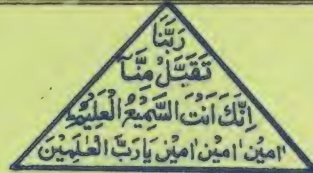 رَبَّنَا
تَقَبَّلْ مِنَّآ
اِنَّكَ اَنْتَ السَّمِيْعُ الْعَلِيْمُ ط
اٰمِيْن اٰمِيْن اٰمِيْن يَا رَبَّ الْعٰلَمِيْنَ